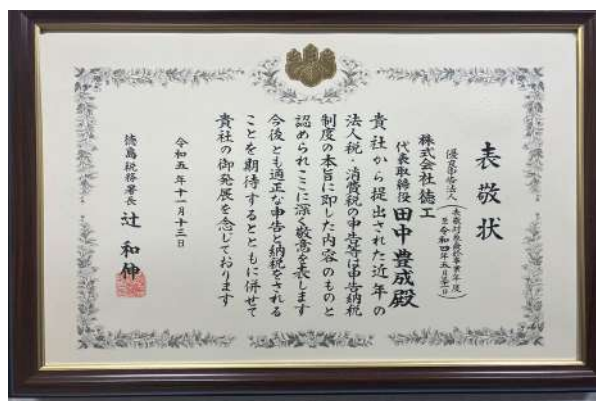 表敬状
優良申告法人
(表敬対象最終事業年度
至令和四年五月三十一日)
株式会社徳工
代表取締役 田中豊成殿
貴社から提出された近年の
法人税・消費税の申告等は申告納税
制度の本旨に即した内容のものと
認められここに深く敬意を表します
今後とも適正な申告と納税をされる
ことを期待するとともに併せて
貴社の御発展を念じております
令和五年十一月十三日
徳島税務署長 辻和伸